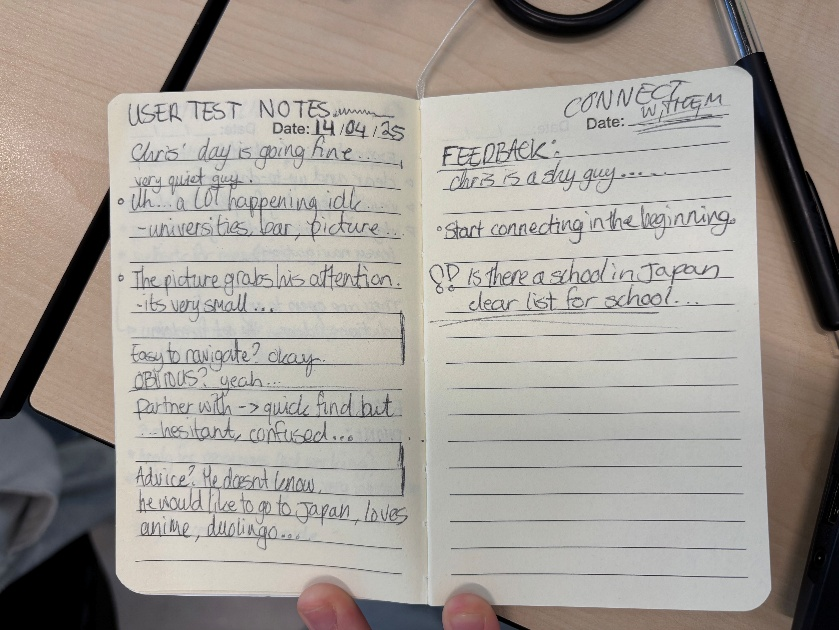 USER TEST NOTES
Date: 14/04/25
Chris' day is going fine...
very quiet guy.
° Uh... a LOT happening idk
-universities, bar, picture...
° The picture grabs his attention.
-its very small...
Easy to navigate? okay.
OBVIOUS? yeah...
partner with -> quick find but
...hesitant, confused...
Advice? He doesnt know.
he would like to go to Japan, loves
anime, duolingo...
CONNECT
WITH EM
Date:
FEEDBACK:
chris is a shy guy.....
°Start connecting in the beginning.
!? Is there a school in Japan
clear list for school...